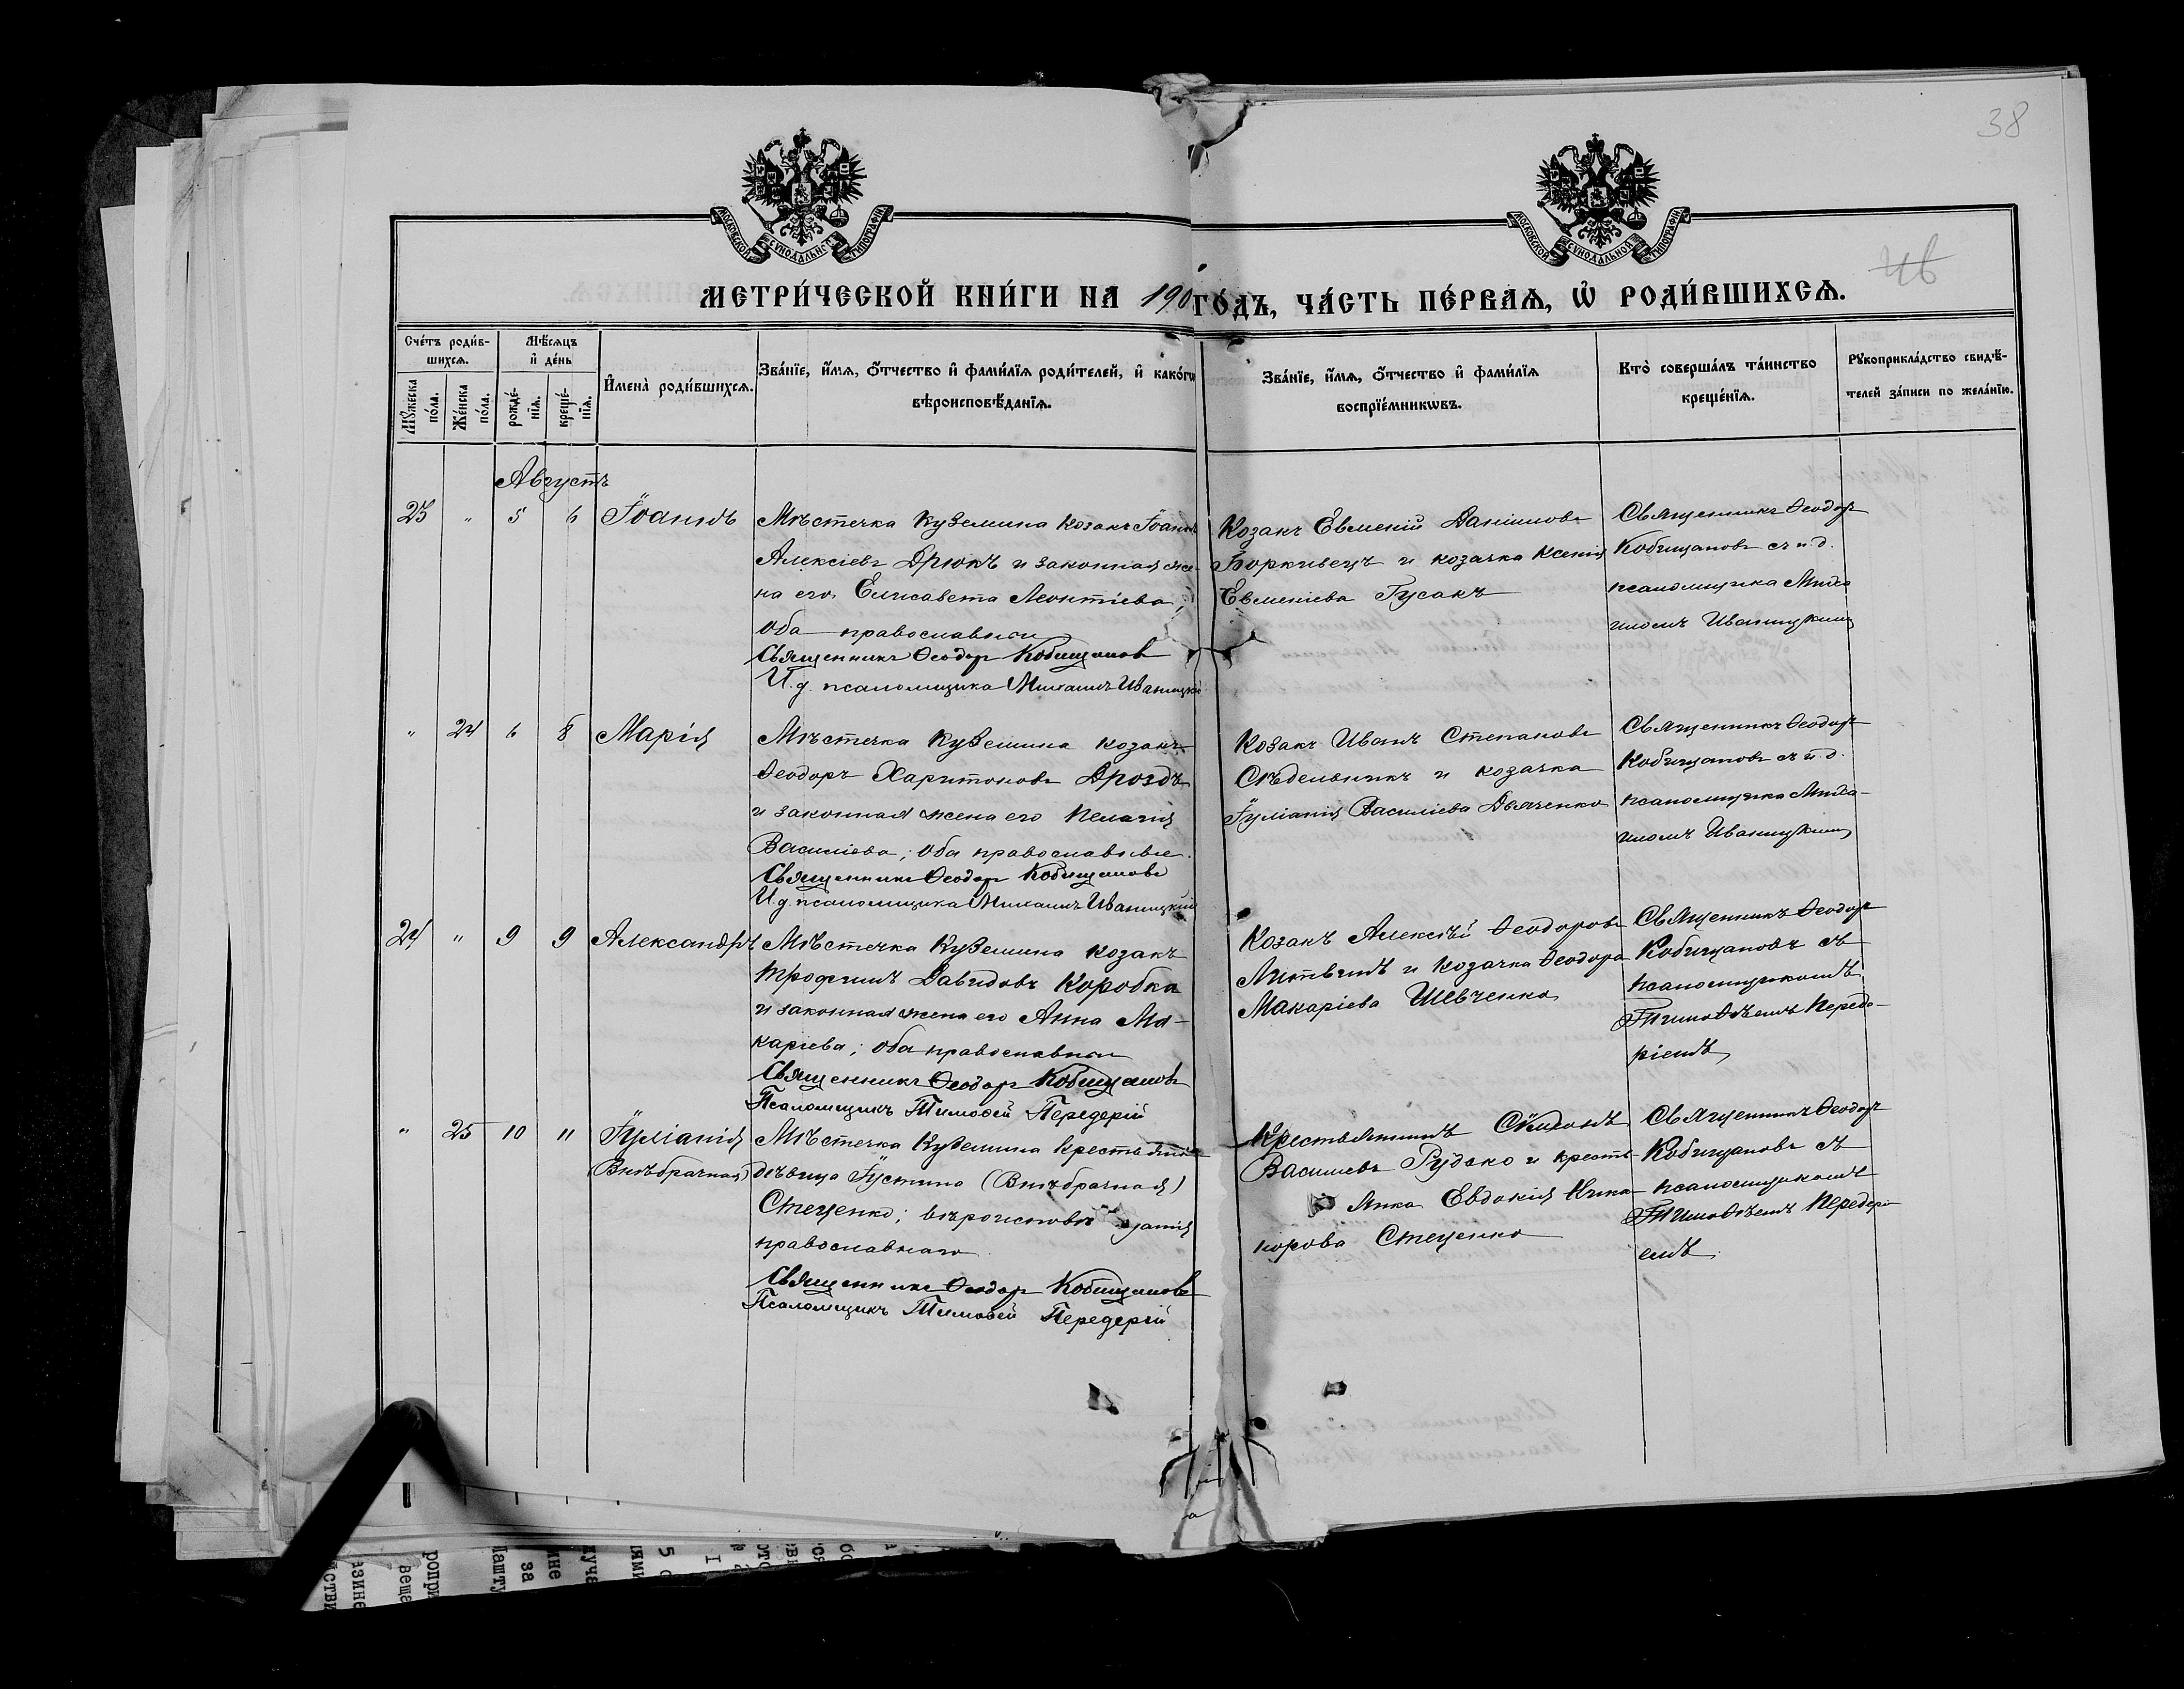 38
46
МОСКОВСКОЙ СѴНОДАЛЬНОЙ ТИПОГРАФІИ
МОСКОВСКОЙ СѴНОДАЛЬНОЙ ТИПОГРАФІИ
МЕТРИ́ЧЕСКОЙ КНИ́ГИ НА 190 ГО́ДЪ, ЧА́СТЬ ПЕ́РВАѦ, Ѡ҆ РОДИ́ВШИХСѦ.
Сче́тъ роди́в-
шихсѧ.
Мѣ́сѧцъ
и҆ де́нь
Мꙋ́жеска
по́ла.
Же́нска
по́ла.
рожде́-
нїѧ.
креще́-
нїѧ.
И҆мена̀ роди́вшихсѧ.
Зва́нїе, и҆́мѧ, ѻ҆́тчество и҆ фами́лїѧ роди́телей, и҆ како́гѡ
вѣроисповѣ́данїѧ.
Зва́нїе, и҆́мѧ, ѻ҆́тчество и҆ фами́лїѧ
воспрїе́мникѡвъ.
Кто̀ соверша́лъ та́инство
креще́нїѧ.
Рꙋкоприкла́дство свидѣ́-
телей за́писи по жела́нїю.
Августъ
23 " 5 6 Іоаннъ
Мѣстечка Куземина козакъ Іоаннъ
Алексіевъ Дрюкъ и законная же-
на его Елисавета Леонтіева;
Оба православные
Священникъ Ѳеодоръ Кобищановъ
И.д. псаломщика Михаилъ Иваницкій
Козакъ Евменій Даніиловъ
Боркивецъ и козачка Ксенія
Евменіева Гусакъ
Священникъ Ѳеодоръ
Кобищановъ съ и.д.
псаломщика Миха
иломъ Иваницкимъ
" 24 6 8 Марія
Мѣстечка Куземина козакъ
Ѳеодоръ Харитоновъ Дроздъ
и законная жена его Пелагія
Василіева; Оба православные.
Священникъ Ѳеодоръ Кобищановъ
И.д. псаломщика Михаилъ Иваницкий
Козакъ Иванъ Степановъ
Сѣдельникъ и козачка
Іуліанія Василіева Дьяченко
Священникъ Ѳеодоръ
Кобищановъ съ и.д.
псаломщика Миха-
иломъ Иваницкимъ
24 " 9 9 Александръ
Мѣстечка Куземина козакъ
Трофимъ Давидовъ Коробка
и законная жена его Анна Ма-
каріева; Оба православные
Священникъ Ѳеодоръ Кобищановъ
Псаломщикъ Тимоѳей Передерій
Козакъ Алексѣй Ѳеодоровъ
Литвинъ и козачка Ѳеодора
Макаріева Шевченко
Священникъ Ѳеодоръ
Кобищановъ съ
псаломщикомъ
Тимоѳѣемъ Передѣ-
ріемъ
" 25 10 11 Іуліанія
(Внѣбрачная)
Мѣстечка Куземина крестьянка
дѣвица Іустина (Внѣбрачная)
Стеценко; вѣроисповѣданія
православнаго.
Священникъ Ѳеодоръ Кобищановъ
Псаломщикъ Тимоѳей Передерій
Крестьянинъ Сѷмеонъ
Василіевъ Рудько и кресть-
янка Евдокія Ника-
норова Стеценко
Священникъ Ѳеодоръ
Кобищановъ съ
псаломщикомъ
Тимоѳѣемъ Передері-
емъ.